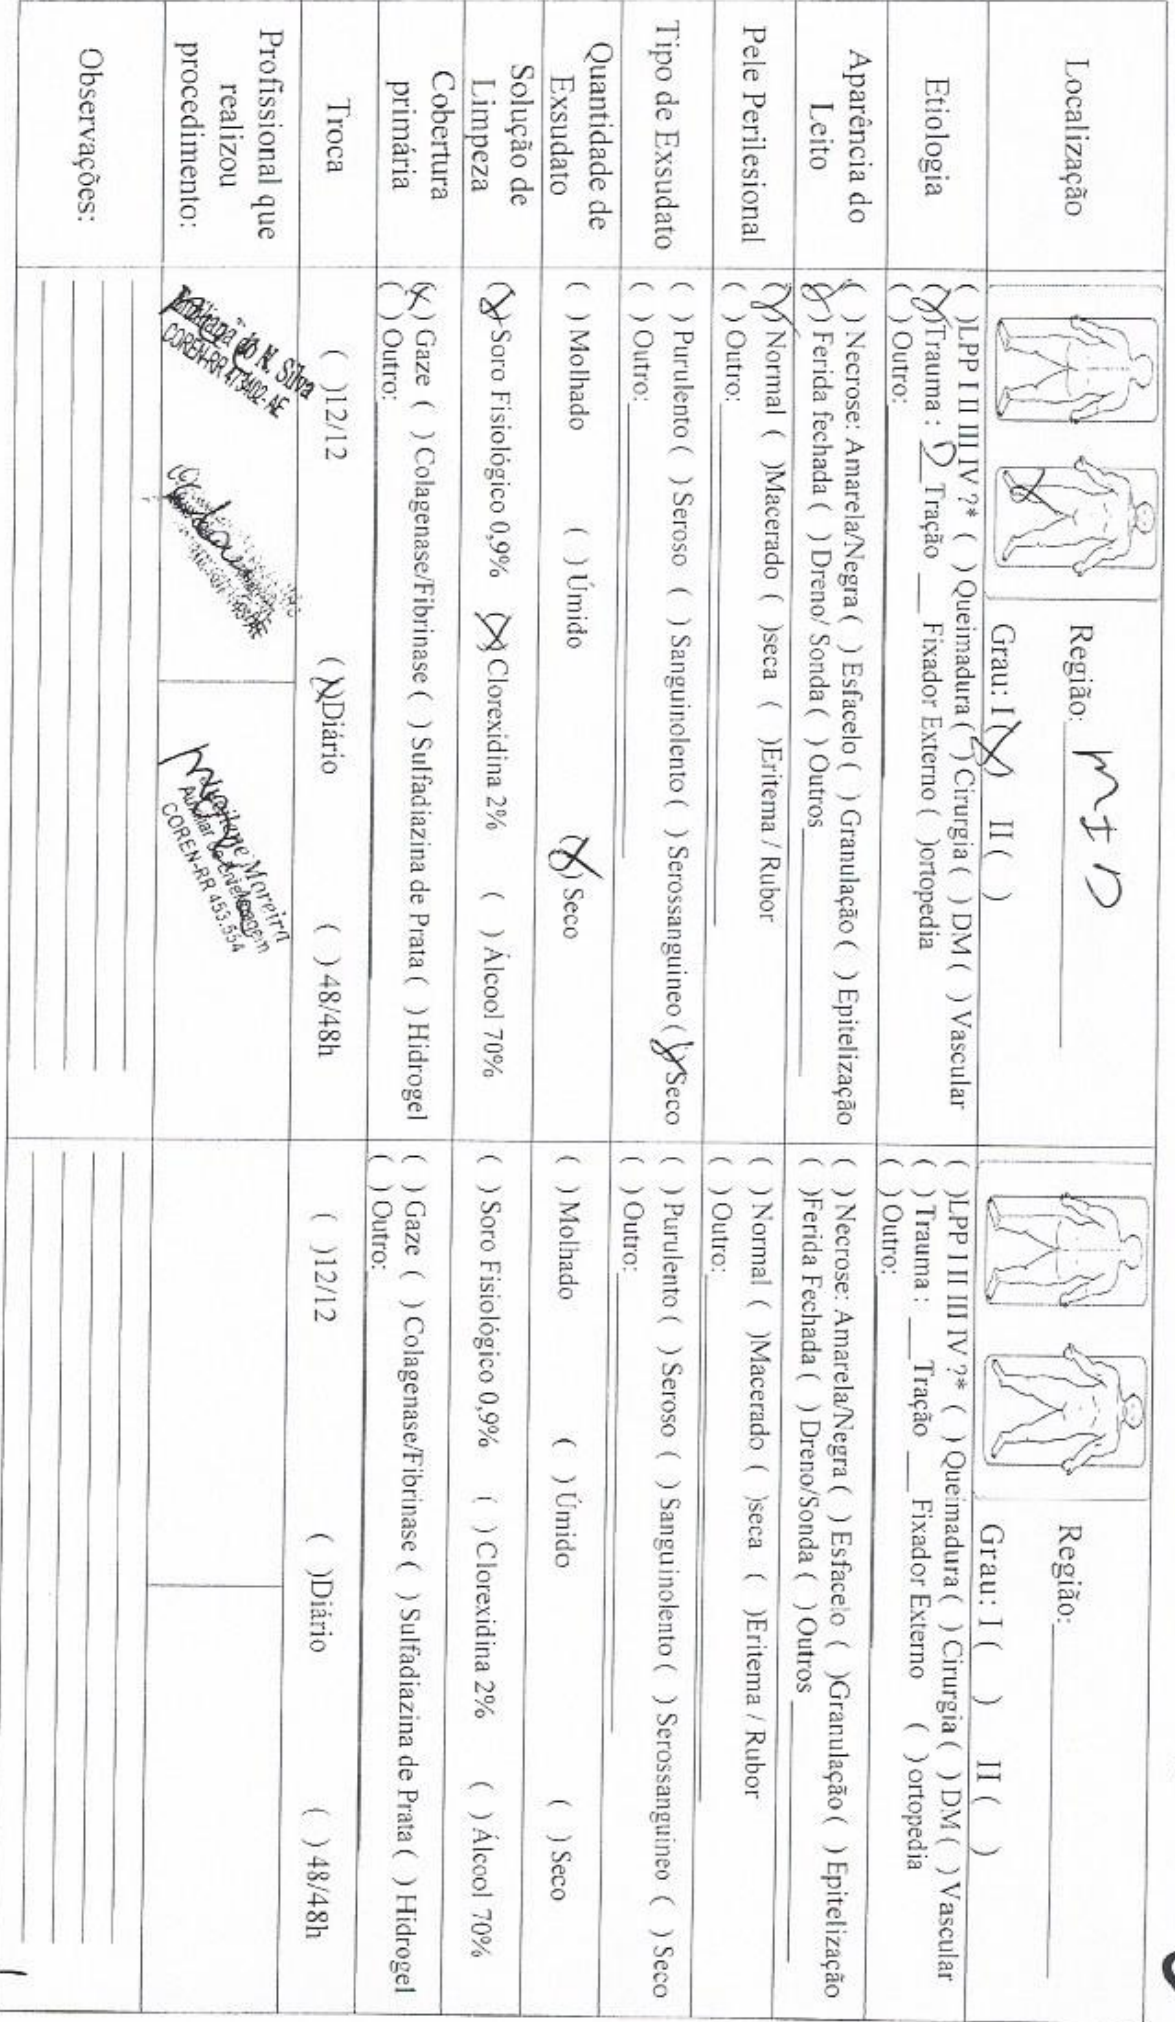 Localização
Região: MID
Grau: I (X) II ( )
Região:
Grau: I ( ) II ( )
Etiologia
( )LPP I II III IV ?* ( ) Queimadura ( ) Cirurgia ( ) DM ( ) Vascular
(X)Trauma : Tração ___ Fixador Externo ( )ortopedia
( ) Outro:
( )LPP I II III IV ?* ( ) Queimadura ( ) Cirurgia ( ) DM ( ) Vascular
( ) Trauma : ___ Tração ___ Fixador Externo ( ) ortopedia
( ) Outro:
Aparência do
Leito
( ) Necrose: Amarela/Negra ( ) Esfacelo ( ) Granulação ( ) Epitelização
(X) Ferida fechada ( ) Dreno/ Sonda ( ) Outros
( ) Necrose: Amarela/Negra ( ) Esfacelo ( )Granulação ( ) Epitelização
( )Ferida Fechada ( ) Dreno/Sonda ( ) Outros
Pele Perilesional
(X) Normal ( )Macerado ( )seca ( )Eritema / Rubor
( ) Outro:
( ) Normal ( )Macerado ( )seca ( )Eritema / Rubor
( ) Outro:
Tipo de Exsudato
( ) Purulento ( ) Seroso ( ) Sanguinolento ( ) Serossanguineo (X) Seco
( ) Outro:
( ) Purulento ( ) Seroso ( ) Sanguinolento ( ) Serossanguineo ( ) Seco
( ) Outro:
Quantidade de
Exsudato
( ) Molhado ( ) Úmido (X) Seco
( ) Molhado ( ) Úmido ( ) Seco
Solução de
Limpeza
(X) Soro Fisiológico 0,9% (X) Clorexidina 2% ( ) Álcool 70%
( ) Soro Fisiológico 0,9% ( ) Clorexidina 2% ( ) Álcool 70%
Cobertura
primária
(X) Gaze ( ) Colagenase/Fibrinase ( ) Sulfadiazina de Prata ( ) Hidrogel
( ) Outro:
( ) Gaze ( ) Colagenase/Fibrinase ( ) Sulfadiazina de Prata ( ) Hidrogel
( ) Outro:
Troca
( )12/12 (X)Diário ( ) 48/48h
( )12/12 ( )Diário ( ) 48/48h
Profissional que
realizou
procedimento:
do N. Silva
COREN-RR 473402-AE
Moreira
Auxiliar de Enfermagem
COREN-RR 453.554
Observações: